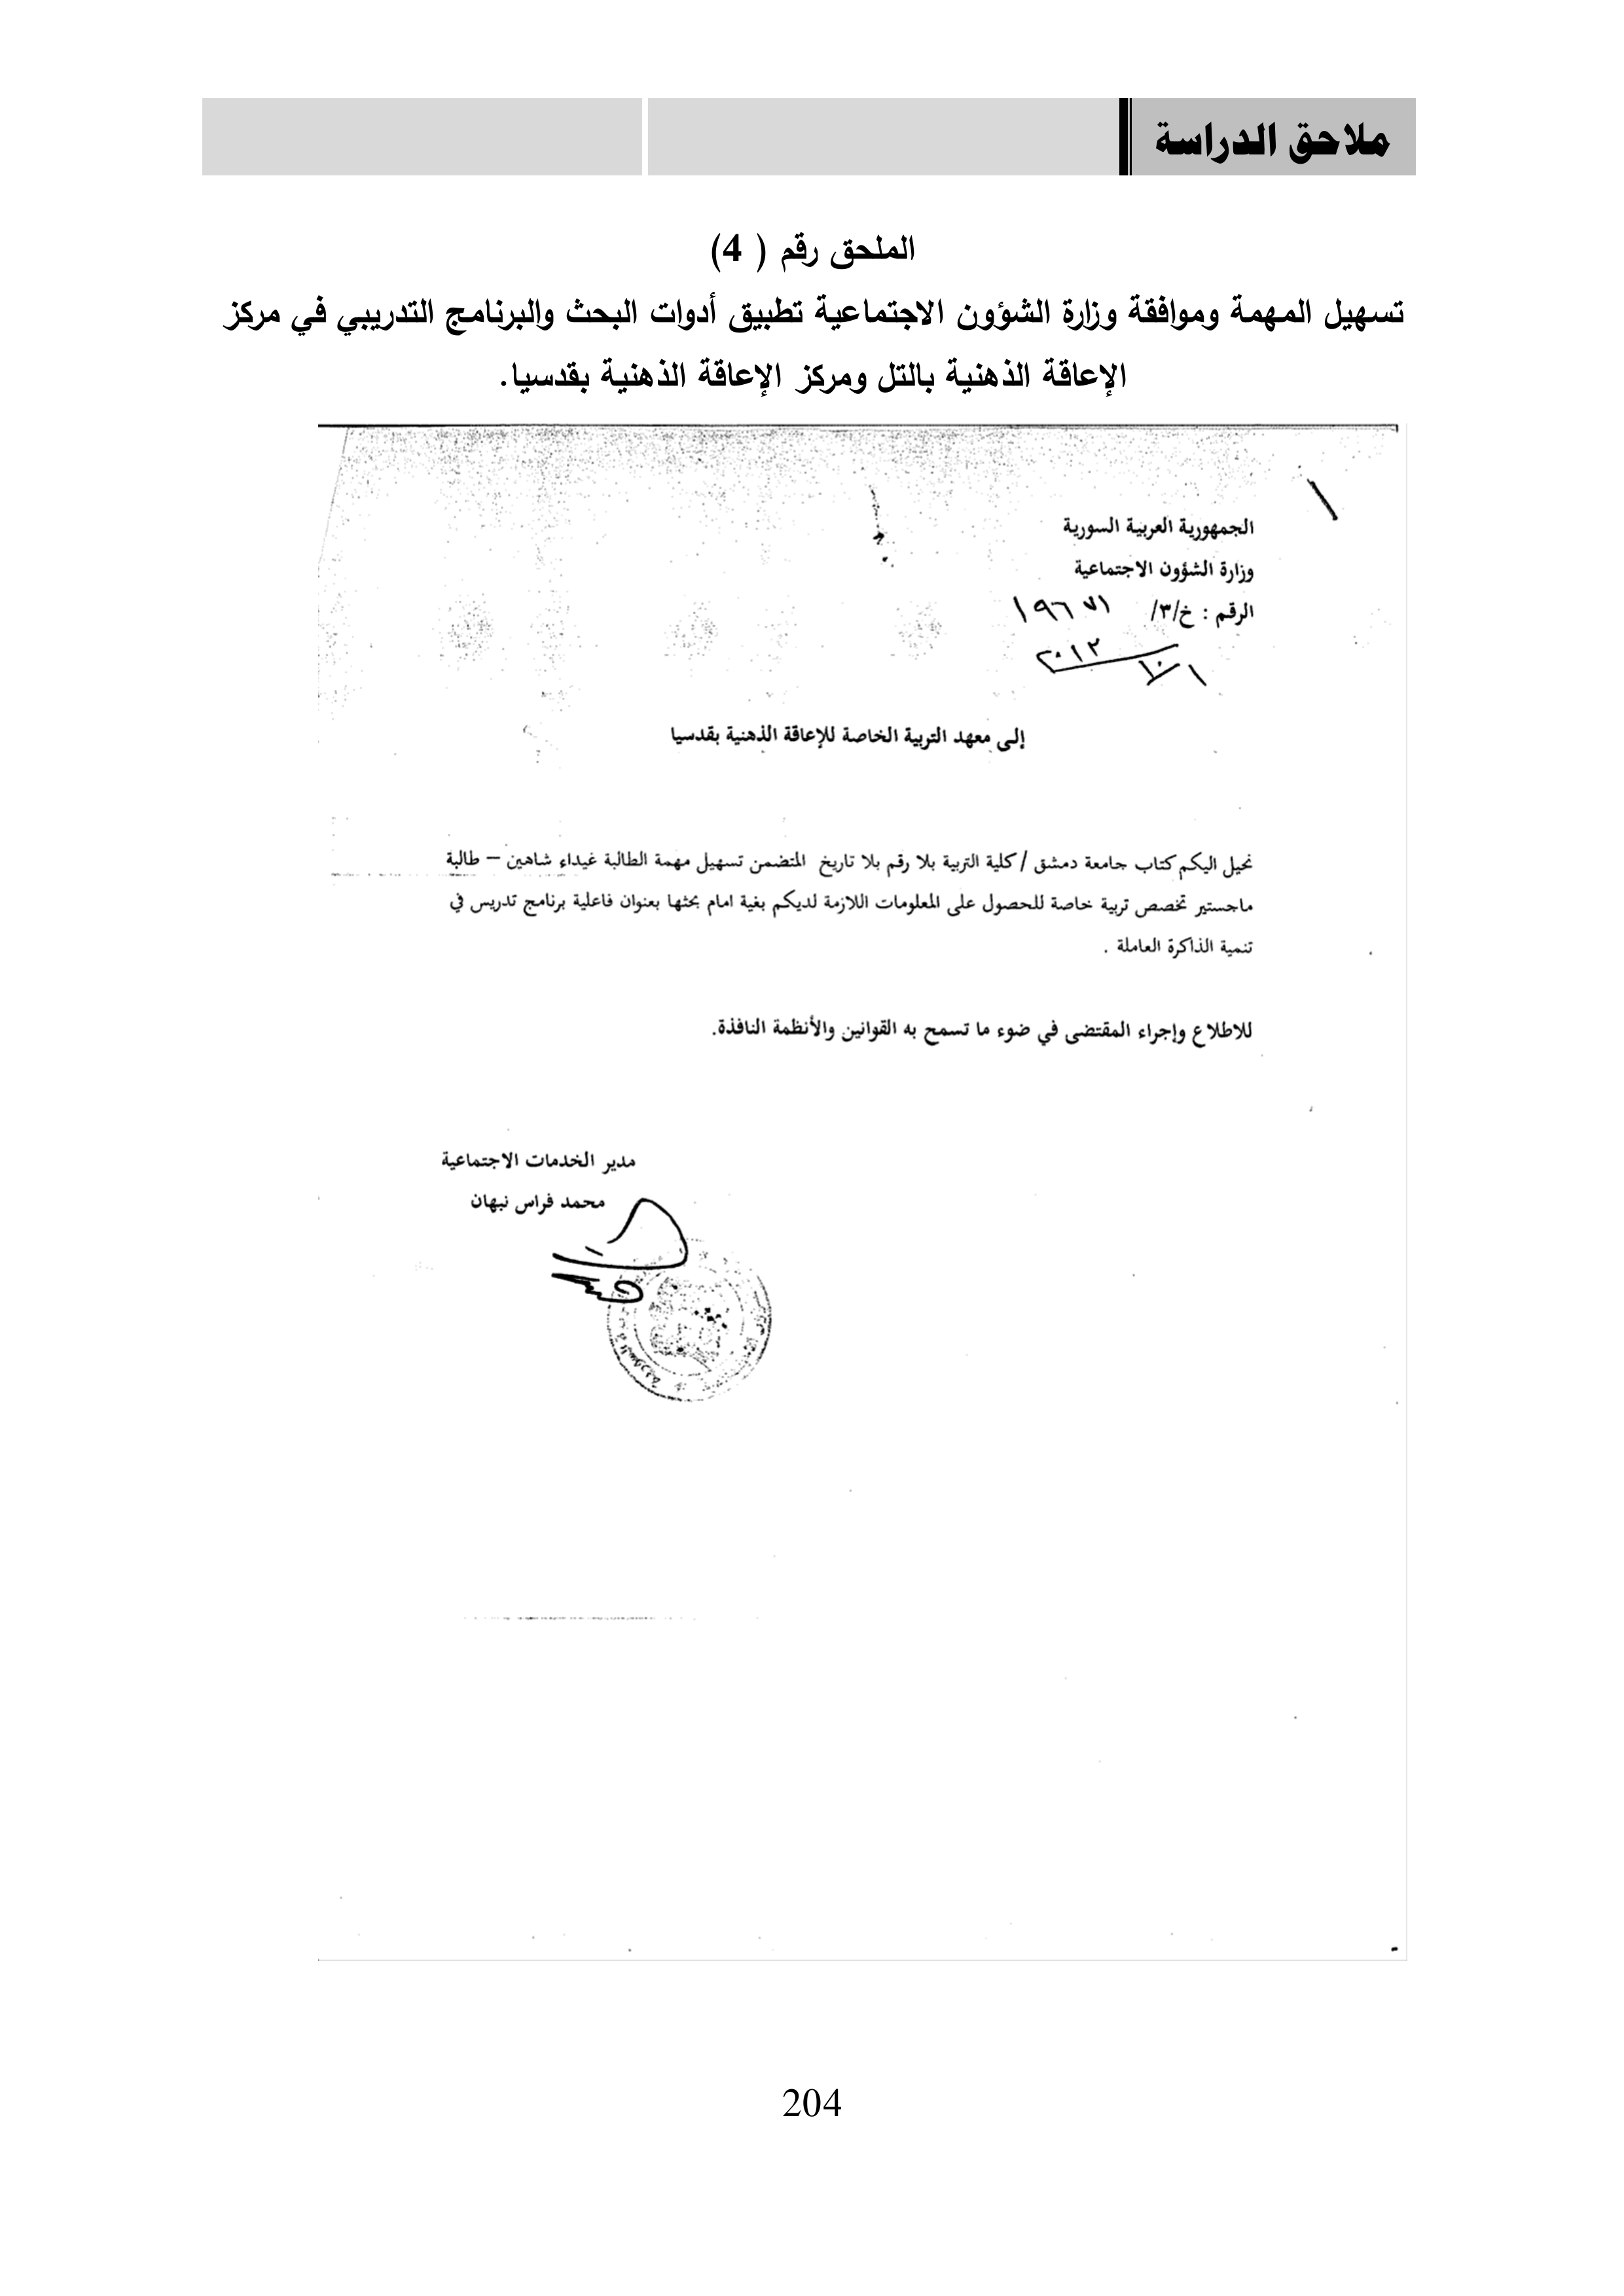 ملاحق الدراسة
الملحق رقم ( 4)
تسهيل المهمة وموافقة وزارة الشؤون الاجتماعية تطبيق أدوات البحث والبرنامج التدريبي في مركز
الإعاقة الذهنية بالتل ومركز الإعاقة الذهنية بقدسيا.
الجمهورية العربية السورية
وزارة الشؤون الاجتماعية
الرقم : خ/٣/ ١٩٦٧١
١ / ١٠ / ٢٠١٣
إلى معهد التربية الخاصة للإعاقة الذهنية بقدسيا
نحيل اليكم كتاب جامعة دمشق / كلية التربية بلا رقم بلا تاريخ المتضمن تسهيل مهمة الطالبة غيداء شاهين – طالبة
ماجستير تخصص تربية خاصة للحصول على المعلومات اللازمة لديكم بغية امام بحثها بعنوان فاعلية برنامج تدريس في
تنمية الذاكرة العاملة .
للاطلاع وإجراء المقتضى في ضوء ما تسمح به القوانين والأنظمة النافذة.
مدير الخدمات الاجتماعية
محمد فراس نبهان
204